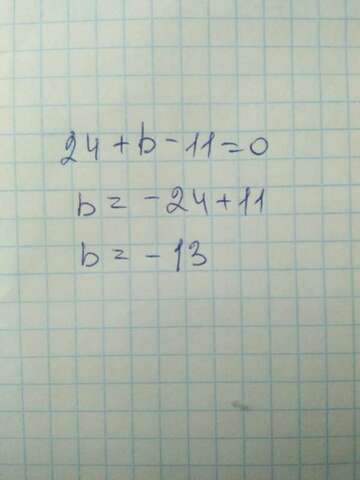 24 + b - 11 = 0
b = - 24 + 11
b = - 13